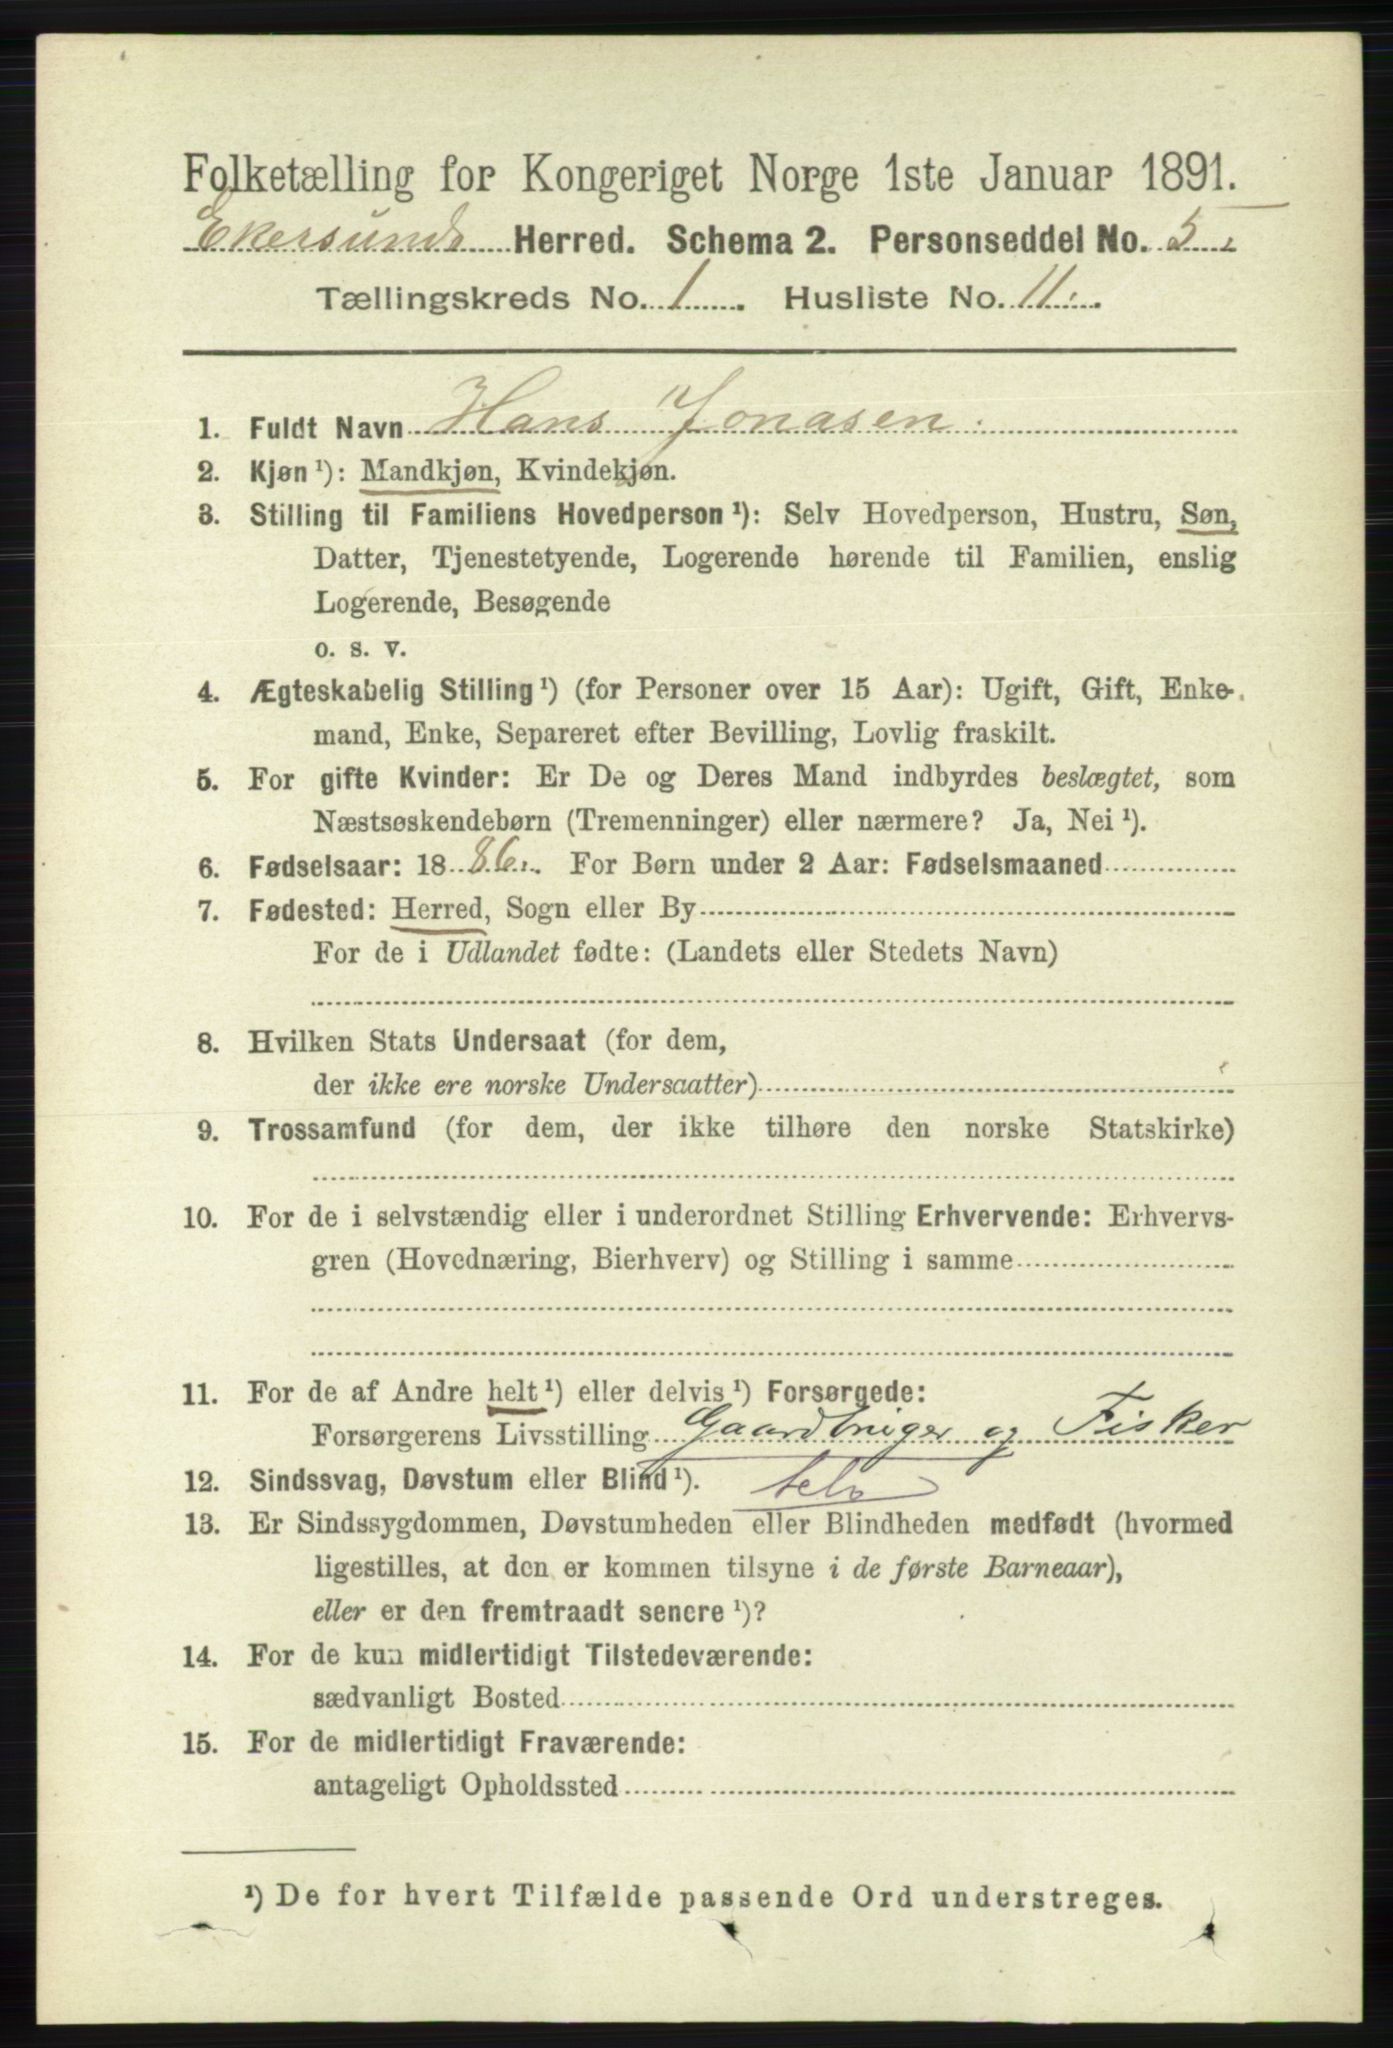 Folketælling for Kongeriget Norge 1ste Januar 1891.
Ekersunds Herred. Schema 2. Personseddel No. 5.
Tællingskreds No. 1. Husliste No. 11.
1. Fuldt Navn Hans Jonasen.
2. Kjøn ¹): Mandkjøn, Kvindekjøn.
3. Stilling til Familiens Hovedperson ¹): Selv Hovedperson, Hustru, Søn,
Datter, Tjenestetyende, Logerende hørende til Familien, enslig
Logerende, Besøgende
o. s. v.
4. Ægteskabelig Stilling ¹) (for Personer over 15 Aar): Ugift, Gift, Enke-
mand, Enke, Separeret efter Bevilling, Lovlig fraskilt.
5. For gifte Kvinder: Er De og Deres Mand indbyrdes beslægtet, som
Næstsøskendebørn (Tremenninger) eller nærmere? Ja, Nei ¹).
6. Fødselsaar: 1886. For Børn under 2 Aar: Fødselsmaaned
7. Fødested: Herred, Sogn eller By
For de i Udlandet fødte: (Landets eller Stedets Navn)
8. Hvilken Stats Undersaat (for dem,
der ikke ere norske Undersaatter)
9. Trossamfund (for dem, der ikke tilhøre den norske Statskirke)
10. For de i selvstændig eller i underordnet Stilling Erhvervende: Erhvervs-
gren (Hovednæring, Bierhverv) og Stilling i samme
11. For de af Andre helt ¹) eller delvis ¹) Forsørgede:
Forsørgerens Livsstilling Gaardbruger og Fisker
12. Sindssvag, Døvstum eller Blind ¹). selv
13. Er Sindssygdommen, Døvstumheden eller Blindheden medfødt (hvormed
ligestilles, at den er kommen tilsyne i de første Barneaar),
eller er den fremtraadt senere ¹)?
14. For de kun midlertidigt Tilstedeværende:
sædvanligt Bosted
15. For de midlertidigt Fraværende:
antageligt Opholdssted
¹) De for hvert Tilfælde passende Ord understreges.